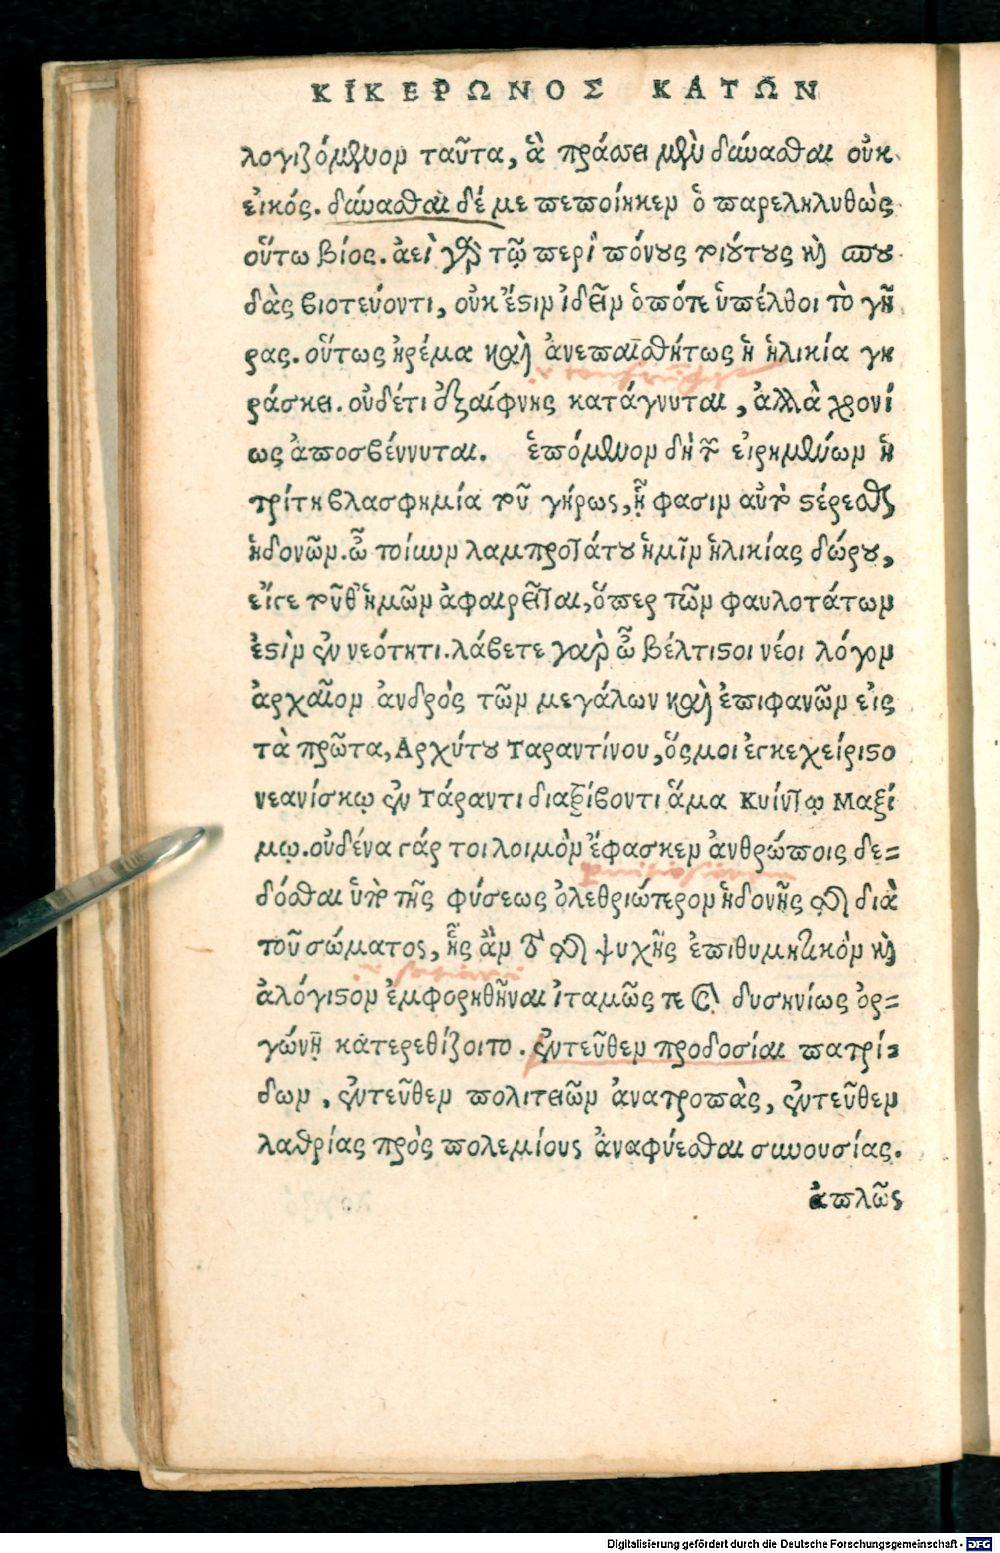 ΚΙΚΕΡΩΝΟΣ ΚΑΤΩΝ
λογιζόμενον ταῦτα, ἃ πράσσει μὲν δύνασθαι οὐκ
εἰκός. δύνασθαι δέ με πεποίηκεν ὁ παρεληλυθὼς
οὕτω βίος. ἀεὶ γὰρ τῷ περὶ πόνους τοιούτους καὶ σπου
δὰς βιοτεύοντι, οὐκ ἔστιν ἰδεῖν ὁπότε ὑπέλθοι τὸ γῆ
ρας. οὕτως ἠρέμα καὶ ἀνεπαισθήτως ἡ ἡλικία γη
ράσκει. οὐδέτι ἐξαίφνης κατάγνυται, ἀλλὰ χρονί
ως ἀποσβέννυται. ἑπόμενον δὴ τῶν εἰρημένων ἡ
τρίτη βλασφημία τοῦ γήρως, ᾗ φασιν αὐτὸ στέρεσθαι
ἡδονῶν. ὦ τοίνυν λαμπροτάτου ἡμῖν ἡλικίας δώρου,
εἴγε τοῦθ' ἡμῶν ἀφαιρεῖται, ὅπερ τῶν φαυλοτάτων
ἐστὶν ἐν νεότητι. λάβετε γὰρ ὦ βέλτιστοι νέοι λόγον
ἀρχαῖον ἀνδρὸς τῶν μεγάλων καὶ ἐπιφανῶν εἰς
τὰ πρῶτα, Αρχύτου Ταραντίνου, ὅς μοι ἐγκεχείριστο
νεανίσκῳ ἐν Τάραντι διατρίβοντι ἅμα Κυίντῳ Μαξί
μῳ. οὐδένα γάρ τοι λοιμὸν ἔφασκεν ἀνθρώποις δε=
δόσθαι ὑπὸ τῆς φύσεως ὀλεθριώτερον ἡδονῆς τῆς διὰ
τοῦ σώματος, ἧς ἂν τὸ τῆς ψυχῆς ἐπιθυμητικὸν καὶ
ἀλόγιστον ἐμφορηθῆναι ἰταμῶς τε καὶ δυσηνίως ὀρ=
γώνῃ κατερεθίζοιτο. ἐντεῦθεν προδοσίαι πατρί=
δων, ἐντεῦθεν πολιτειῶν ἀνατροπὰς, ἐντεῦθεν
λαθρίας πρὸς πολεμίους ἀναφύεσθαι συνουσίας.
ἁπλῶς
Digitalisierung gefördert durch die Deutsche Forschungsgemeinschaft - DFG